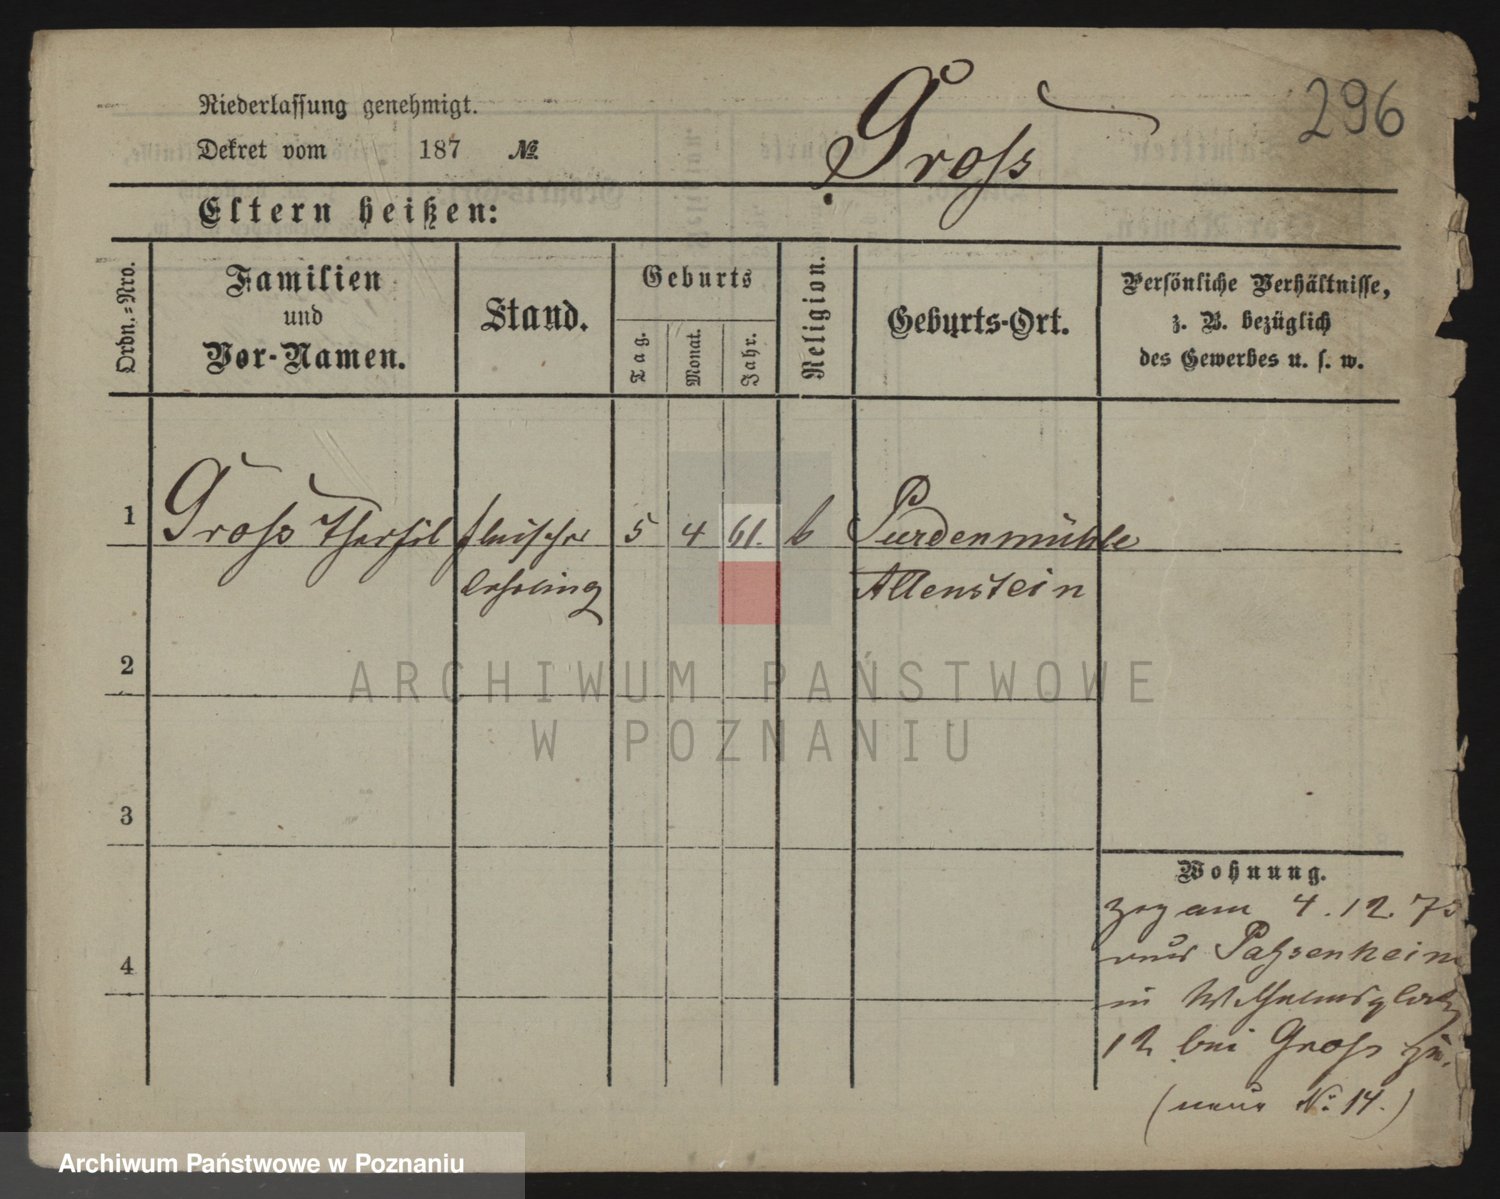 296
Niederlassung genehmigt.
Dekret vom 187 №
Gross
Eltern heißen:
Ordn.-Nro.
Familien
und
Vor-Namen.
Stand.
Geburts
Tag.
Monat.
Jahr.
Religion.
Geburts-Ort.
Persönliche Verhältnisse,
z. B. bezüglich
des Gewerbes u. s. w.
1 Gross Theophil Fleischer 5 4 61. k Purdenmühle
lehrling Allenstein
2
ARCHIWUM PAŃSTWOWE
W POZNANIU
3
Wohnung.
zog am 4.12.75
aus Passenheim
4
in Wilhelmsplatz
12 bei Gross zu.
(neue No 14.)
Archiwum Państwowe w Poznaniu